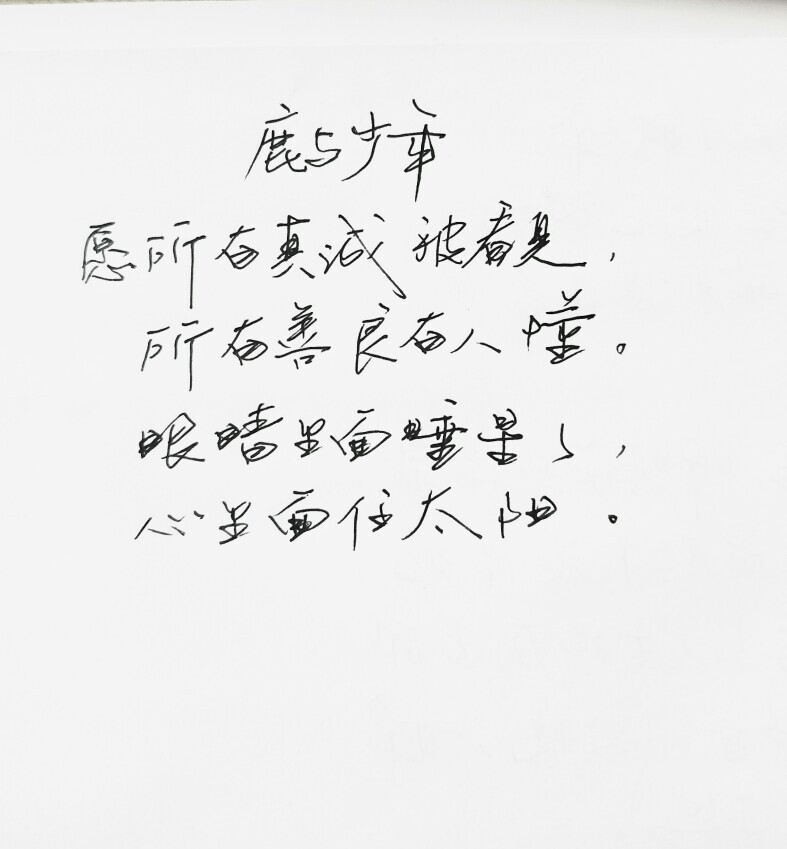 鹿与少年
愿所有真诚被看见,
所有善良有人懂。
眼睛里面睡星了,
心里面住太阳。